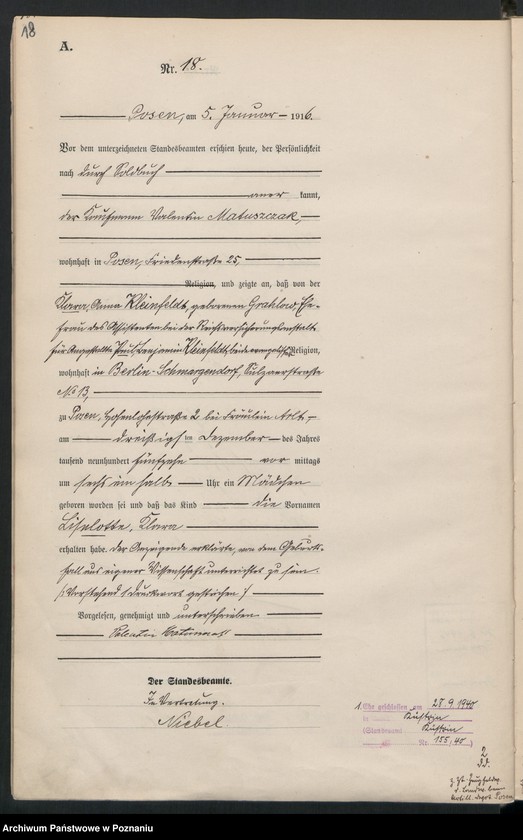 18
A.
Nr. 18.
Posen, am 5. Januar 1916.
Vor dem unterzeichneten Standesbeamten erschien heute, der Persönlichkeit
nach durch Soldbuch
aner kannt,
der Kaufmann Valentin Matuszczak,
wohnhaft in Posen, Friedenstraße 25,
Religion, und zeigte an, daß von der
Klara, Anna Kleinfeldt, geborenen Grahlow, Ehe-
frau des Assistenten bei der Reichsversicherungsanstalt
für Angestellte Paul Benjamin Kleinfeldt, beide evangelischer Religion,
wohnhaft in Berlin-Schmargendorf, Sulzaerstraße
No 13,
zu Posen, Hohenlohestraße 2 bei Fräulein
am dreißigsten Dezember des Jahres
tausend neunhundert fünfzehn vor mittags
um sechs ein halb Uhr ein Mädchen
geboren worden sei und daß das Kind die Vornamen
Liselotte, Klara
erhalten habe. Der Anzeigende erklärte, von dem Geburts-
fall aus eigener Wissenschaft unterrichtet zu sein.
(Vorstehend 1 Druckwort gestrichen.)
Vorgelesen, genehmigt und unterschrieben
Valentin
Der Standesbeamte.
In Vertretung.
Niebel
1. Ehe geschlossen am 28.9.1940
in Küstrin
(Standesamt Küstrin
Nr. 155/40)
2
Archiwum Państwowe w Poznaniu